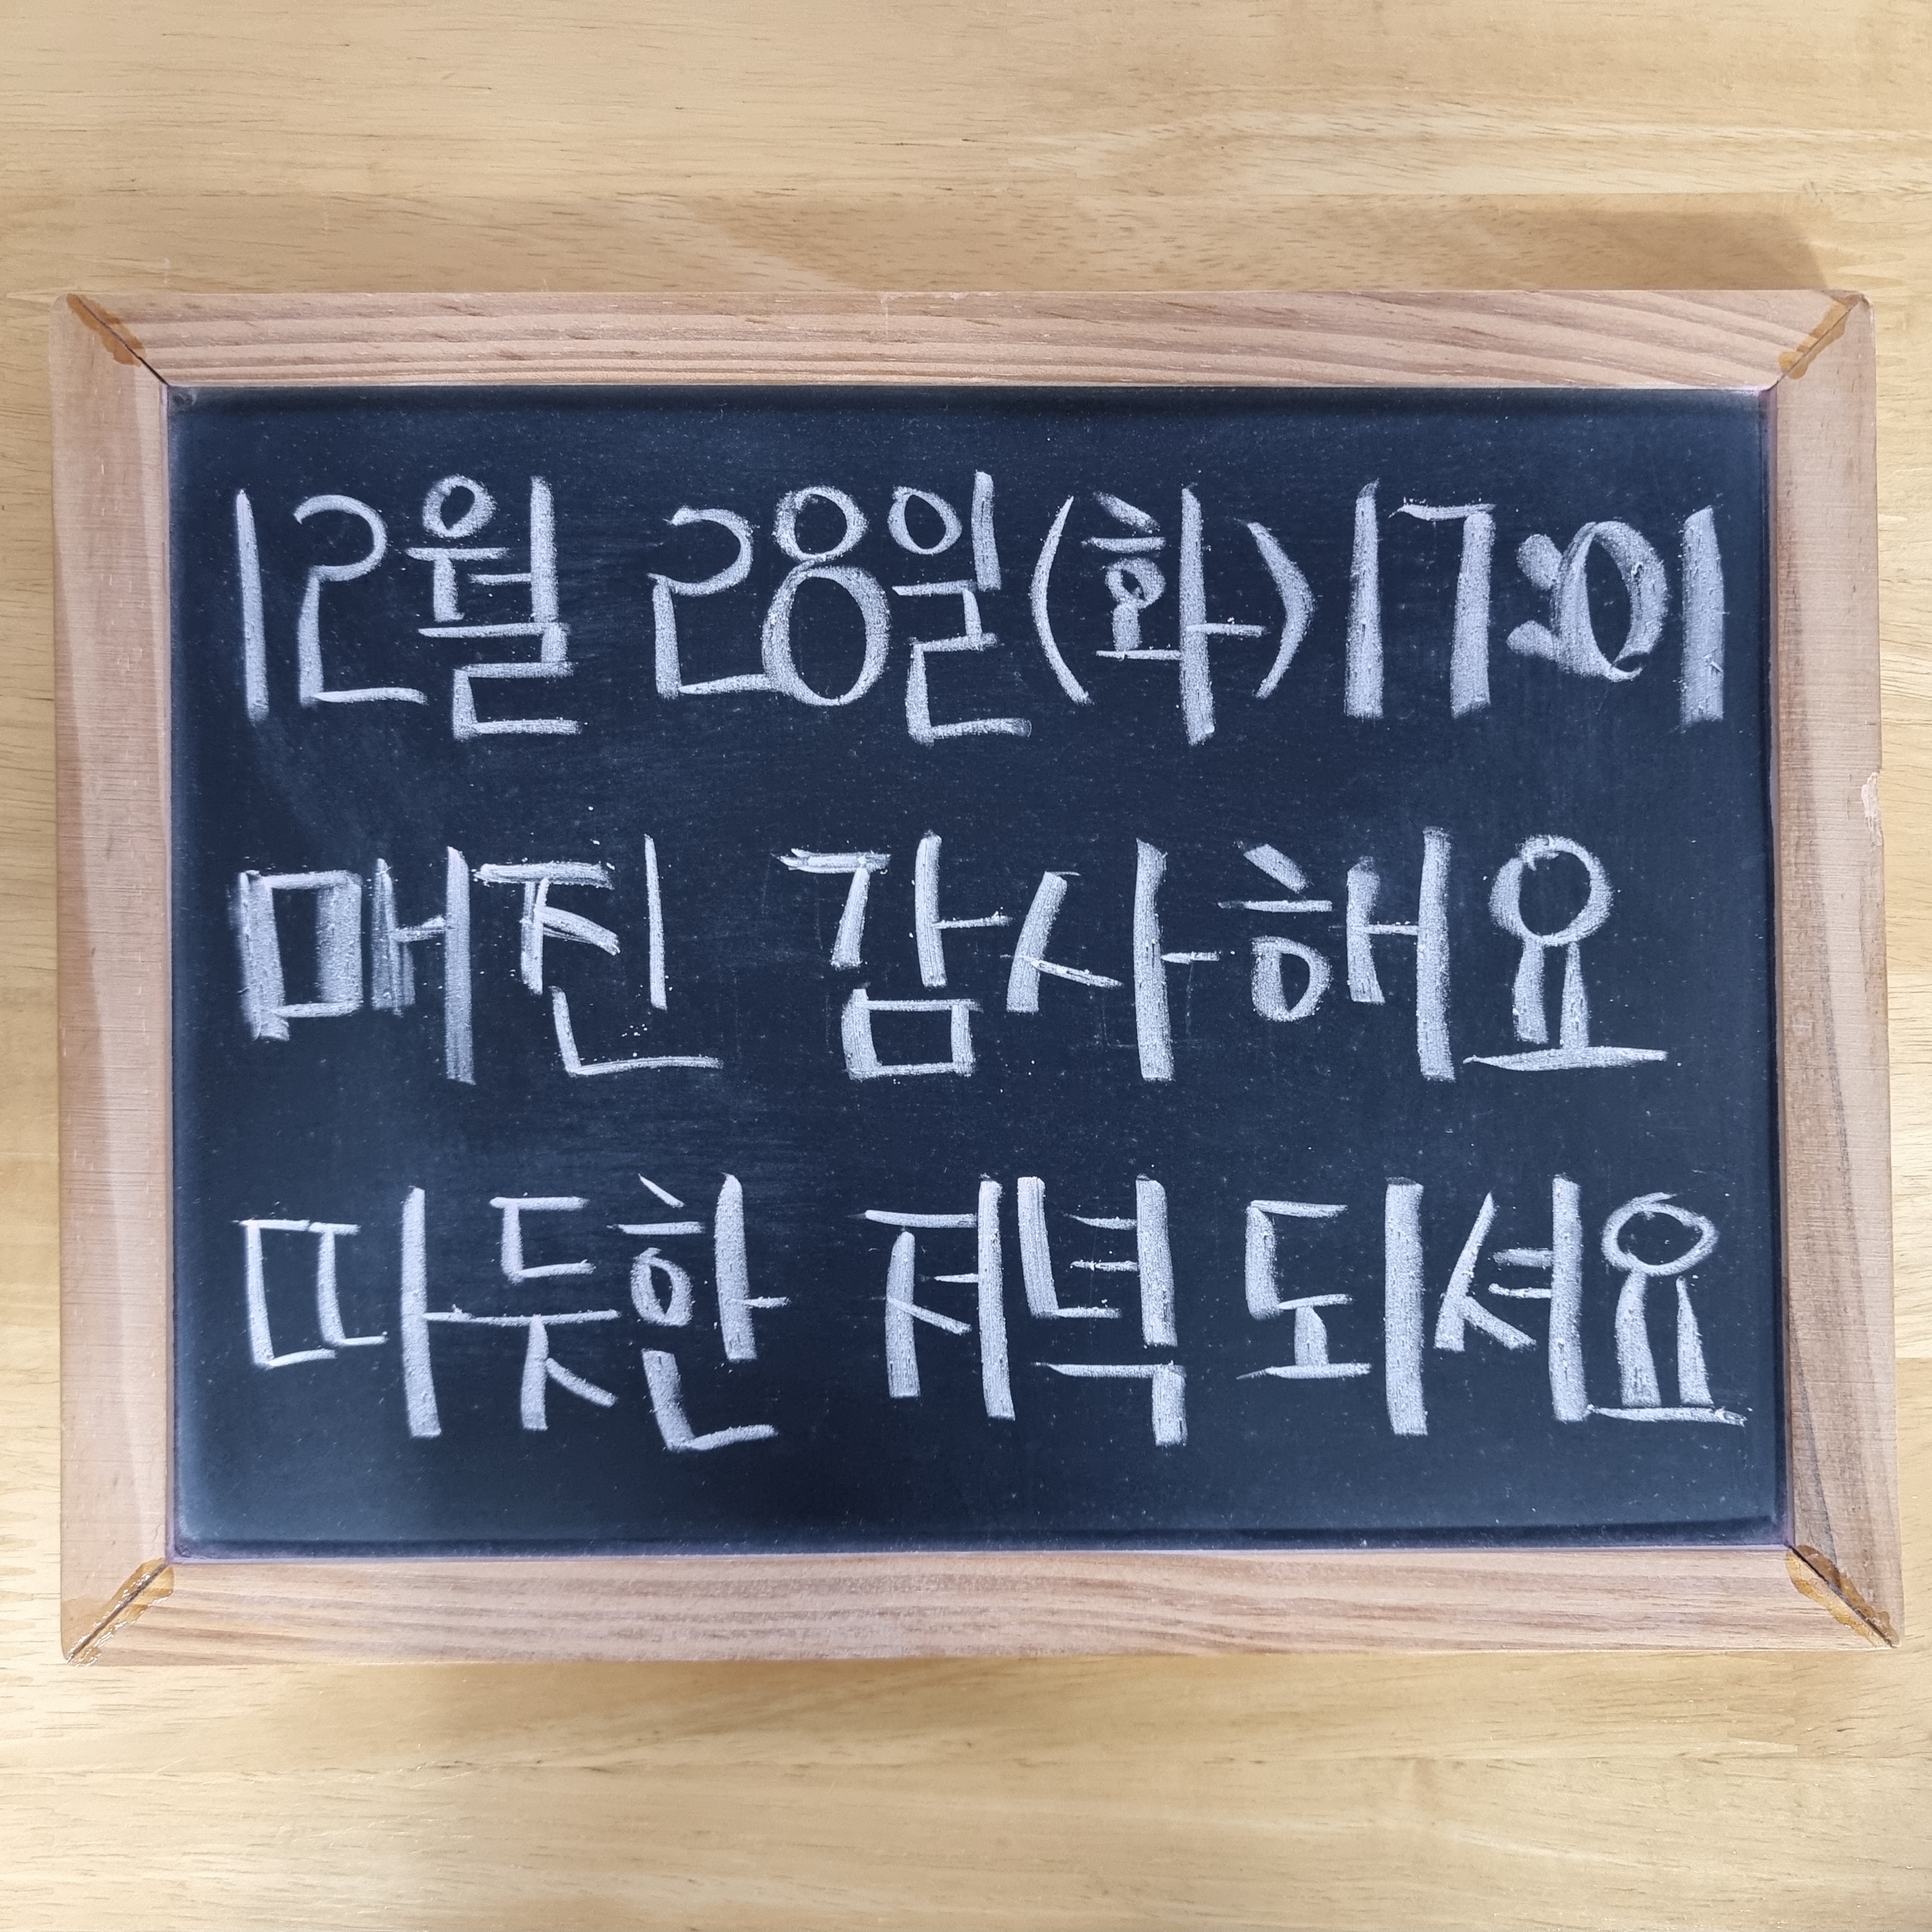 12월 28일(화) 17:01
매진 감사해요
따듯한 저녁 되셔요